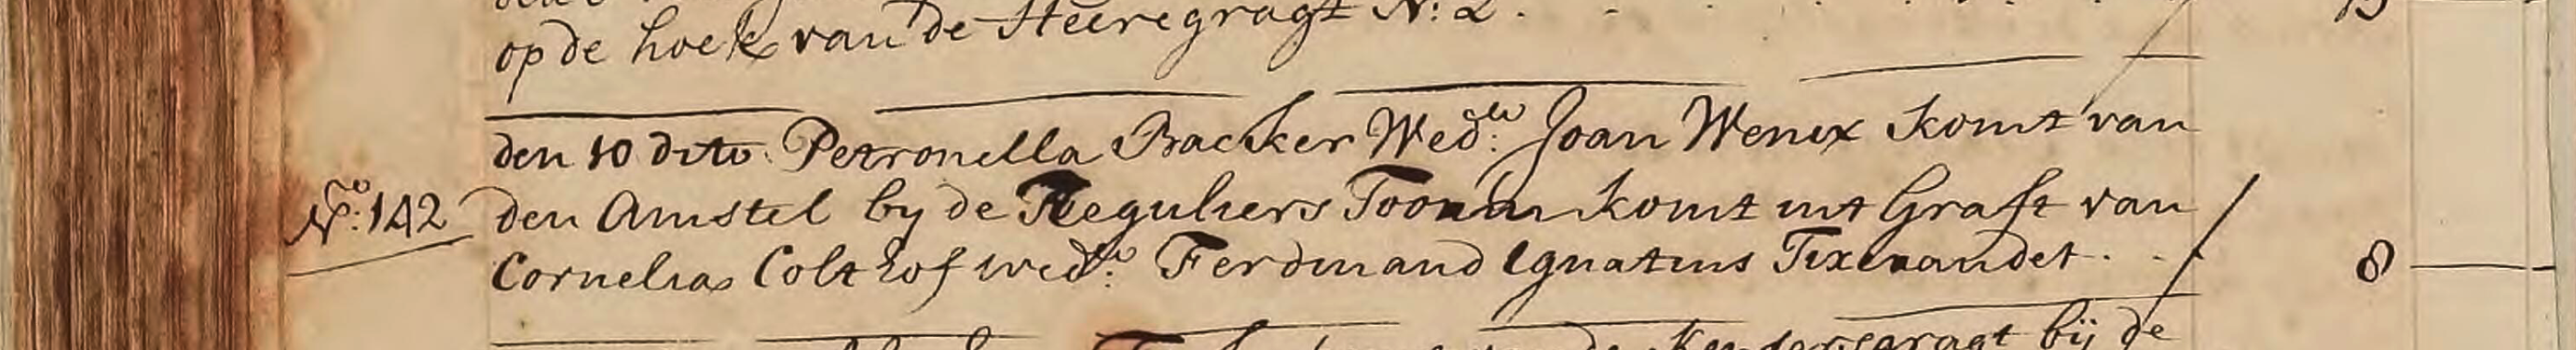 op de hoek van de Heeregragt N: 2.
den 10 dito Petronella Backer Wed.de Joan Wenix komt van
No: 142 den Amstel by de Reguliers Tooren komt int Graft van
Cornelia Colthof wed.de: Ferdinand Ignatius Tixerandet . . 8 —
bij de